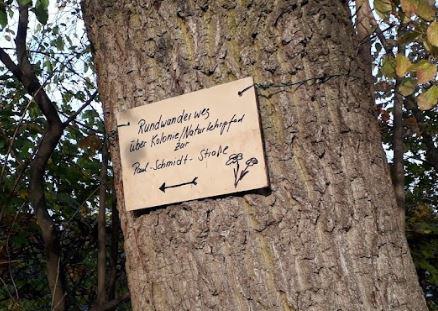 Rundwanderweg
über Kolonie/Naturlehrpfad
zur
Paul-Schmidt-Straße